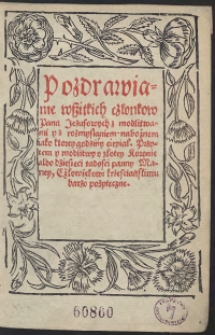 Pozdrawia-
nie wssitkich członkow
Pana Jezusowych z modlitwa-
mi y z rozmysląniem nabożnem
iako ktorey godziny cirpiał. Potem
y modlitwy o złotey Koronie
albo dziesieci radosci panny Ma-
ryey, Człowiekowi krześciańskiemu
barzo pożyteczne.
60860